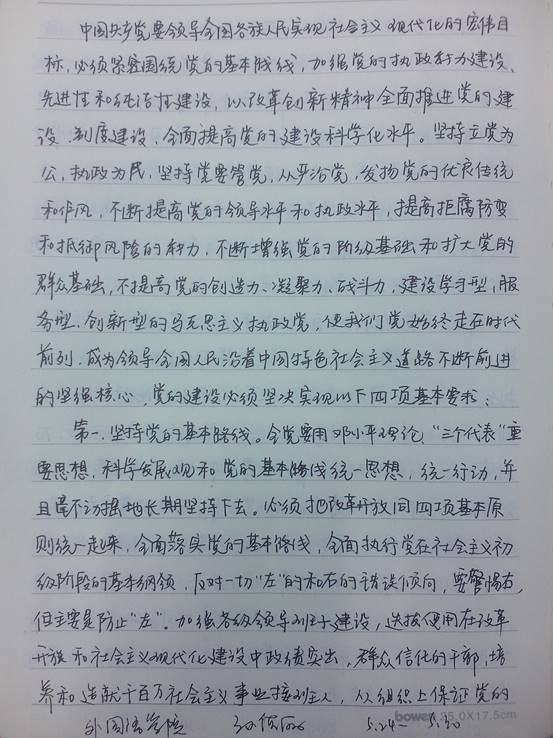 中国共产党要领导全国各族人民实现社会主义现代化的宏伟目
标,必须紧密围绕党的基本路线,加强党的执政能力建设、
先进性和纯洁性建设,以改革创新精神全面推进党的建
设、制度建设,全面提高党的建设科学化水平。坚持立党为
公,执政为民,坚持党要管党,从严治党,发扬党的优良传统
和作风,不断提高党的领导水平和执政水平,提高拒腐防变
和抵御风险的能力,不断增强党的阶级基础和扩大党的
群众基础,不提高党的创造力、凝聚力、战斗力,建设学习型、服
务型、创新型的马克思主义执政党,使我们党始终走在时代
前列,成为领导全国人民沿着中国特色社会主义道路不断前进
的坚强核心,党的建设必须坚决实现以下四项基本要求:
第一、坚持党的基本路线。全党要用邓小平理论、“三个代表”重
要思想,科学发展观和党的基本路线统一思想,统一行动,并
且毫不动摇地长期坚持下去。必须把改革开放同四项基本原
则统一起来,全面落实党的基本路线,全面执行党在社会主义初
级阶段的基本纲领,反对一切“左”的和右的错误倾向,要警惕右,
但主要是防止“左”。加强各级领导班子建设,选拔使用在改革
开放和社会主义现代化建设中政绩突出,群众信任的干部,培
养和造就千百万社会主义事业接班人,从组织上保证党的
外国语学院 5.24— 5.30
bowen 25.0X17.5cm